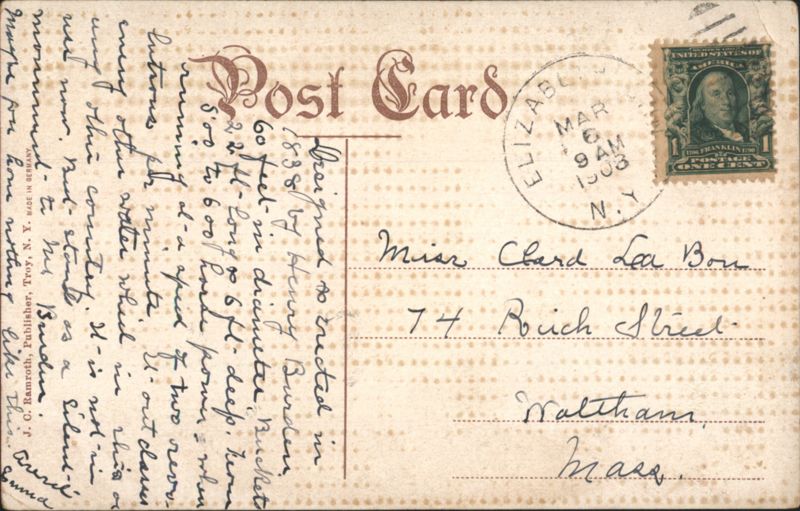 Post Card
ELIZABE
MAR
6
9 AM
1908
N.Y.
UNITED STATES OF
AMERICA
1 1706 FRANKLIN 1790 1
POSTAGE
ONE CENT
Miss Clard La Bon
74 Street
Waltham,
Mass.
Designed & erected in
1838 by Henry Burden,
60 feet in diameter, Buckets
22 ft- long & 6 ft- deep. from
500 to 600 horse power, when
running at a speed of two revo-
lutions per minute. It out classes
every other water wheel in this or
any other country. It is not in
use now. But stands as a silent
monument to Mr Burden.
Maybe you have nothing like this.
Emma
J. C. Ramroth, Publisher, Troy, N. Y. MADE IN GERMANY